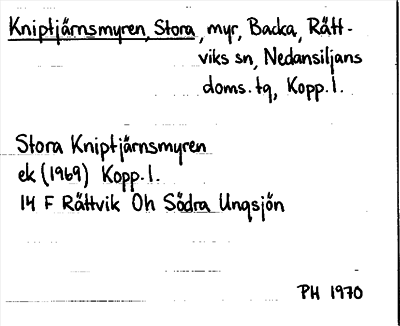 Kniptjärnsmyren, Stora, myr, Backa, Rätt-
viks sn, Nedansiljans
doms. tg, Kopp. l.
Stora Kniptjärnsmyren
ek (1969) Kopp. l.
14 F Rättvik Oh Södra Ungsjön
PH 1970